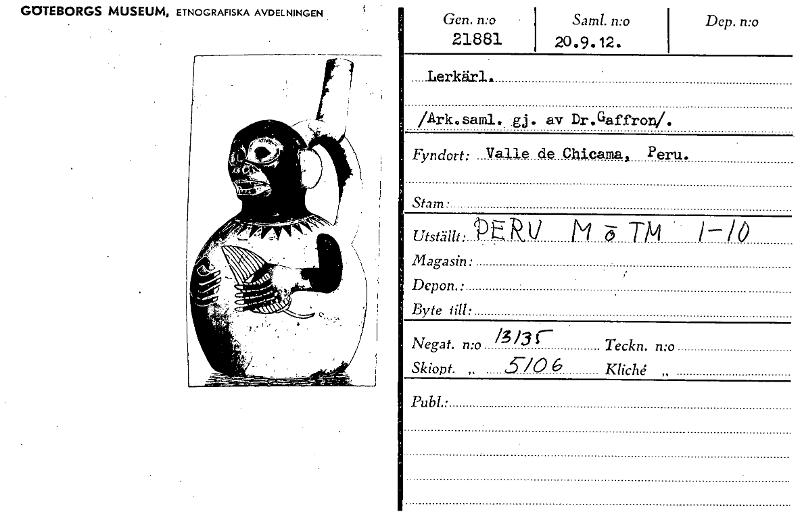 GÖTEBORGS MUSEUM, ETNOGRAFISKA AVDELNINGEN
Gen. n:o Saml. n:o Dep. n:o
21881 20.9.12.
Lerkärl.
/Ark.saml. gj. av Dr.Gaffron/.
Fyndort: Valle de Chicama, Peru.
Stam:
Utställt: PERU M ō TM 1-10
Magasin:
Depon.:
Byte till:
Negat. n:o 13135 Teckn. n:o
Skiopt. „ 5106 Kliché „
Publ.: